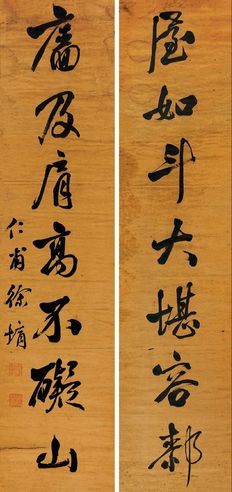 屋如斗大堪容厀
廧及肩高不礙山
仁甫徐